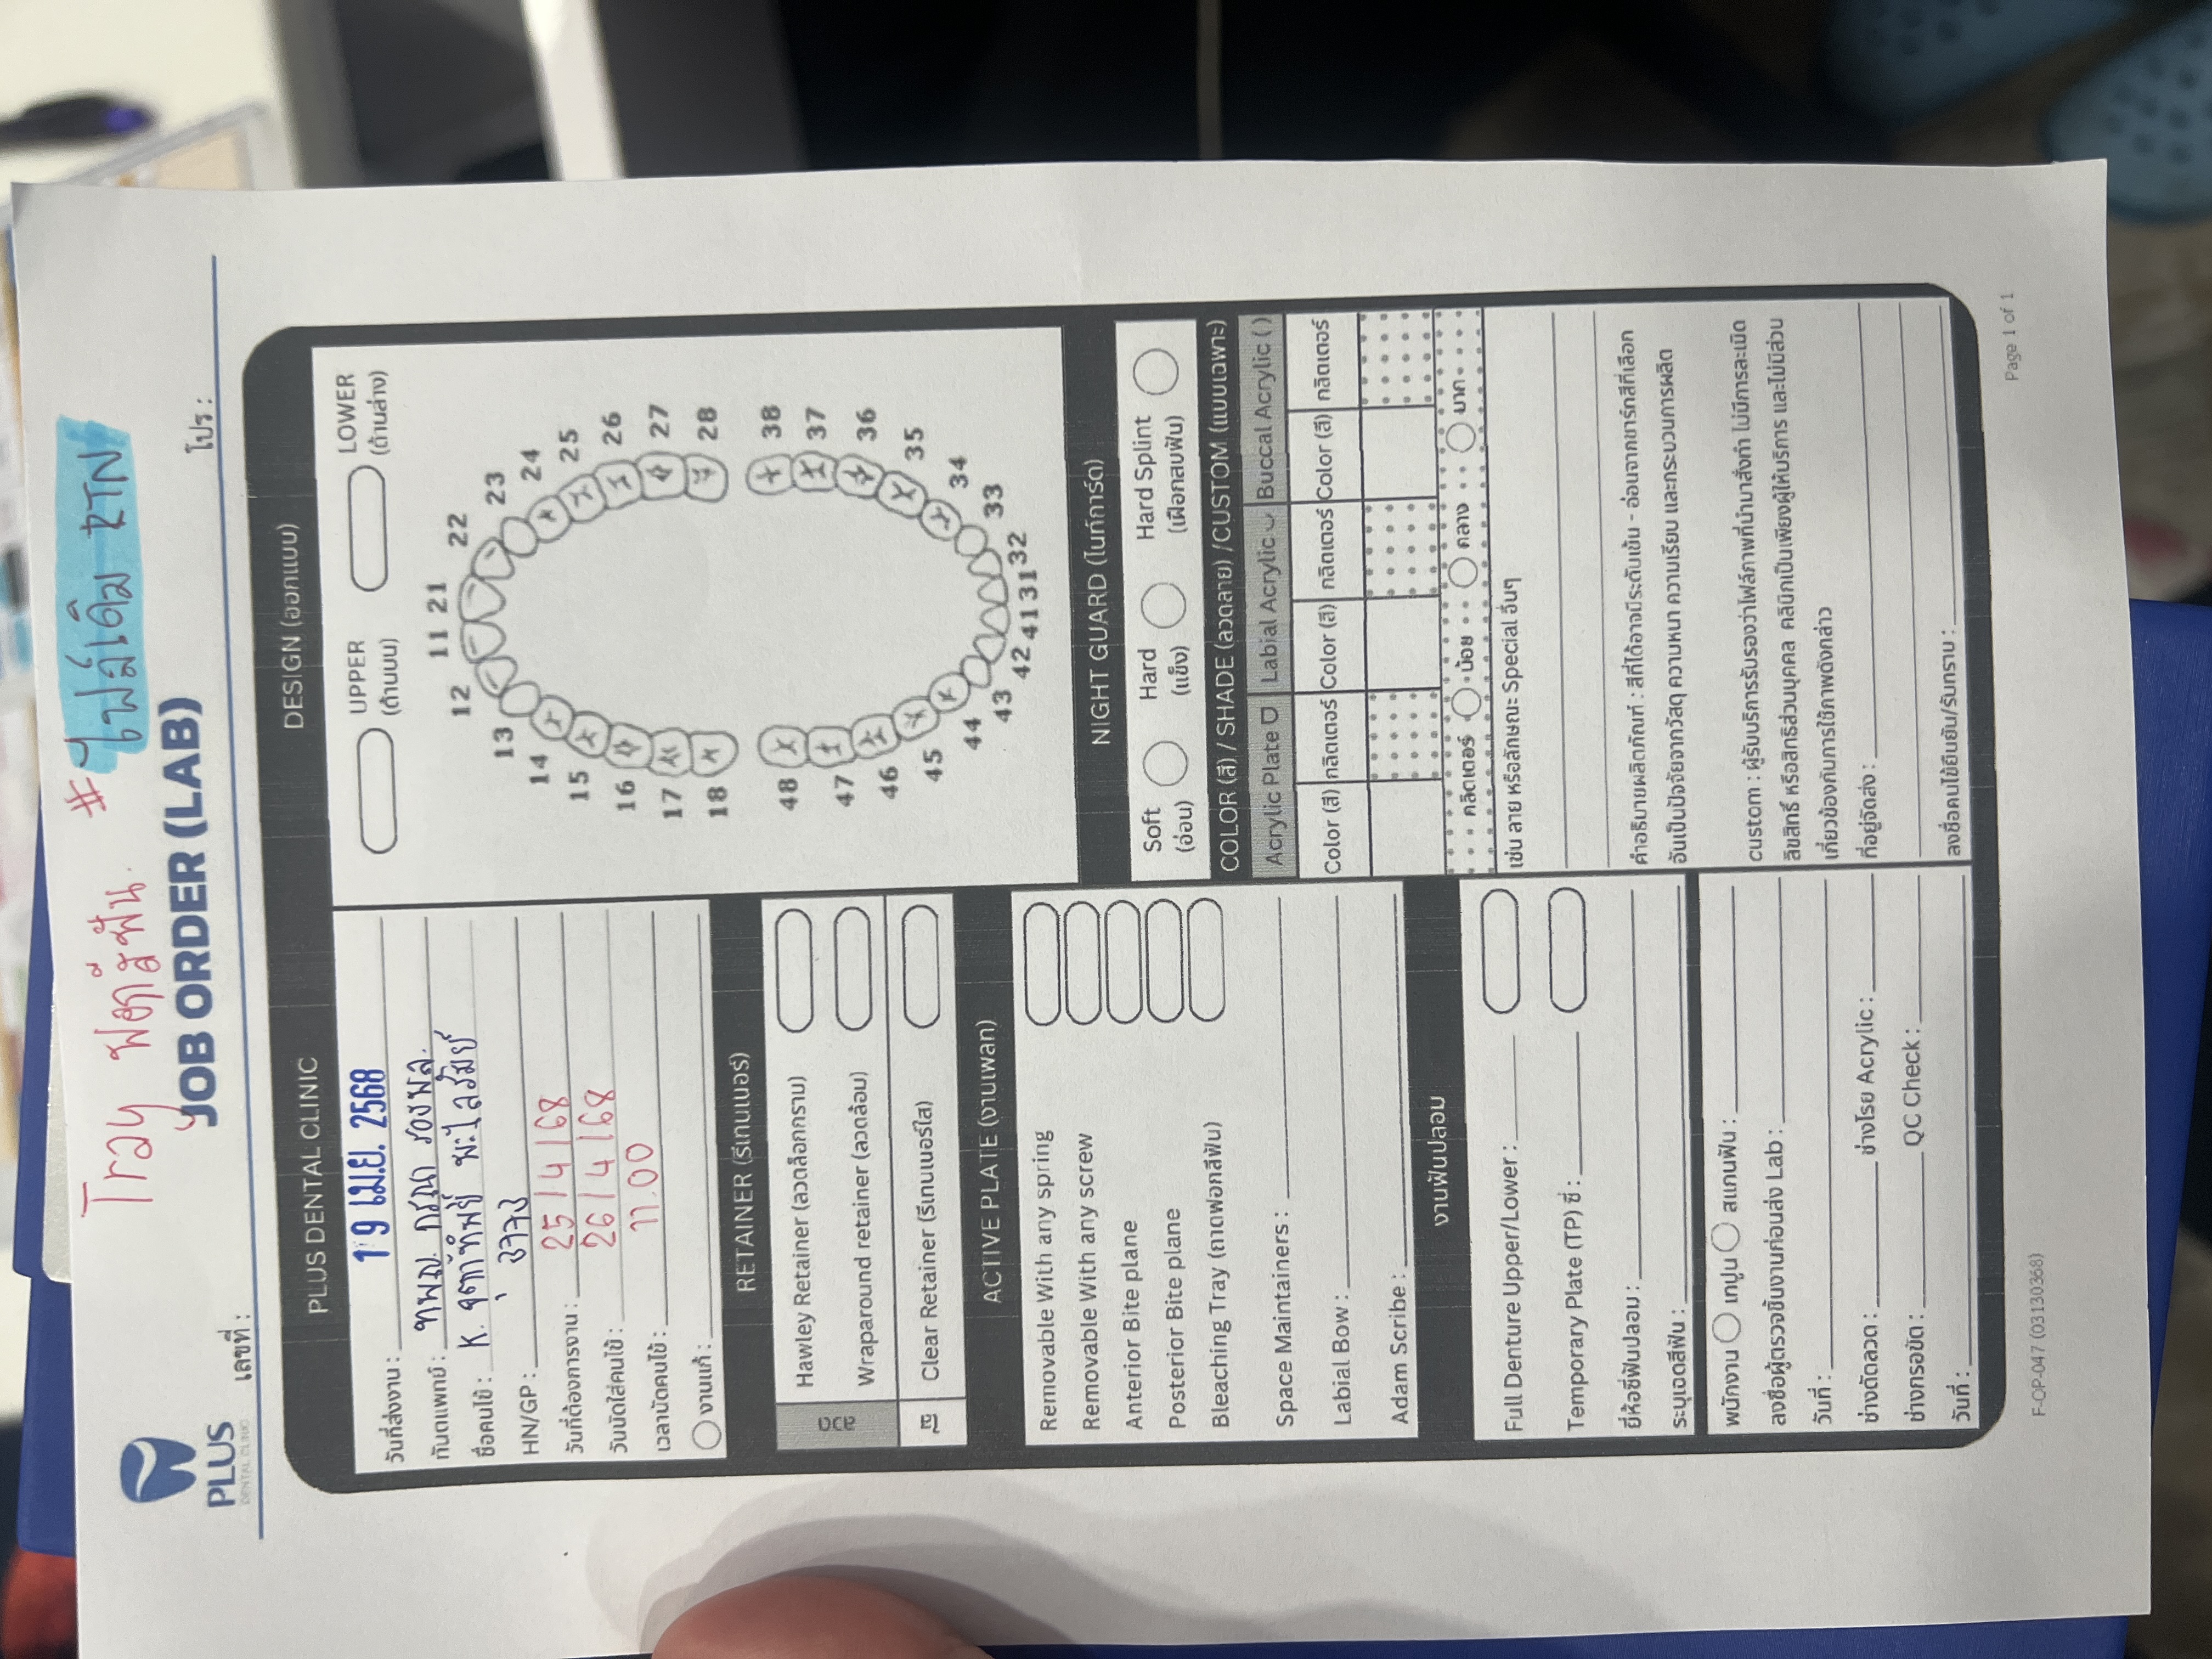 Tray ฟอกสีฟัน. # ไฟล์เดิม RTN
PLUS
DENTAL CLINIC
เลขที่ :
JOB ORDER (LAB)
โปร :
PLUS DENTAL CLINIC
วันที่ส่งงาน : 19 เม.ย. 2568
ทันตแพทย์ : ทพญ.
ชื่อคนไข้ : K.
HN/GP :
วันที่ต้องการงาน : 25/4/68
วันนัดใส่คนไข้ : 26/4/68
เวลานัดคนไข้ : 11.00
งานแก้ :
RETAINER (รีเทนเนอร์)
ลวด
Hawley Retainer (ลวดล็อกกราม)
Wraparound retainer (ลวดล้อม)
ใส
Clear Retainer (รีเทนเนอร์ใส)
ACTIVE PLATE (งานเพลท)
Removable With any spring
Removable With any screw
Anterior Bite plane
Posterior Bite plane
Bleaching Tray (ถาดฟอกสีฟัน)
Space Maintainers :
Labial Bow :
Adam Scribe :
งานฟันปลอม
Full Denture Upper/Lower :
Temporary Plate (TP) ซี่ :
ยี่ห้อซี่ฟันปลอม :
ระบุเฉดสีฟัน :
พนักงาน เทปูน สแกนฟัน :
ลงชื่อผู้ตรวจชิ้นงานก่อนส่ง Lab :
วันที่ :
ช่างดัดลวด : ช่างโรย Acrylic :
ช่างกรอขัด : QC Check :
วันที่ :
DESIGN (ออกแบบ)
UPPER
(ด้านบน)
LOWER
(ด้านล่าง)
11 21
12 22
13 23
14 24
15 25
16 26
17 27
18 28
48 38
47 37
46 36
45 35
44 34
43 33
42 41 31 32
NIGHT GUARD (ไนท์การ์ด)
Soft
(อ่อน)
Hard
(แข็ง)
Hard Splint
(เฝือกสบฟัน)
COLOR (สี) / SHADE (ลวดลาย) /CUSTOM (แบบเฉพาะ)
Acrylic Plate Labial Acrylic Buccal Acrylic ( )
Color (สี) กลิตเตอร์ Color (สี) กลิตเตอร์ Color (สี) กลิตเตอร์
คลิตเตอร์ น้อย กลาง มาก
เช่น ลาย หรือลักษณะ Special อื่นๆ
คำอธิบายผลิตภัณฑ์ : สีที่ได้อาจมีระดับเข้ม - อ่อนจากชาร์ทสีที่เลือก
อันเป็นปัจจัยจากวัสดุ ความหนา ความเรียบ และกระบวนการผลิต
custom : ผู้รับบริการรับรองว่าไฟล์ภาพที่นำมาสั่งทำ ไม่มีการละเมิด
ลิขสิทธิ์ หรือสิทธิส่วนบุคคล คลินิกเป็นเพียงผู้ให้บริการ และไม่มีส่วน
เกี่ยวข้องกับการใช้ภาพดังกล่าว
ที่อยู่จัดส่ง :
ลงชื่อคนไข้ยืนยัน/รับทราบ :
F-OP-047 (03130368)
Page 1 of 1